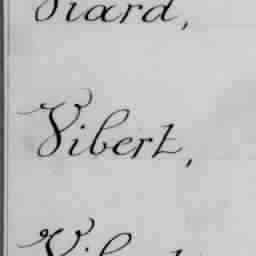 Viard,
Vibert,